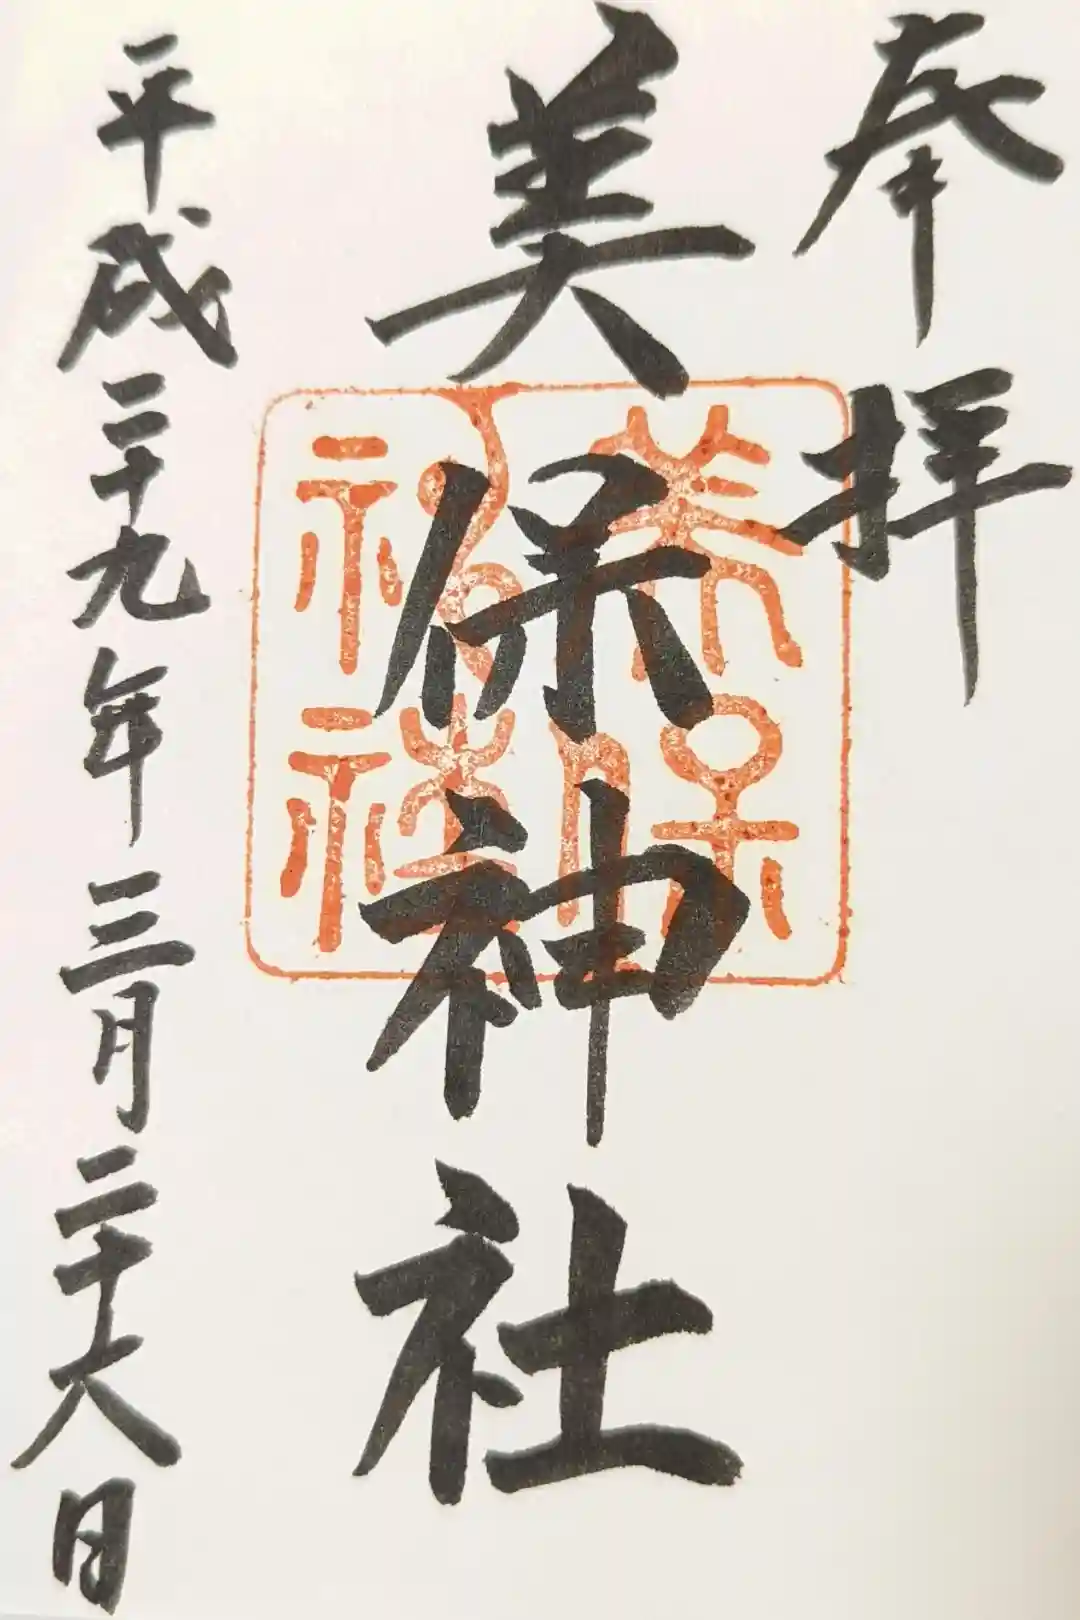 奉拝
美保神社
美保神社
平成二十九年三月二十六日